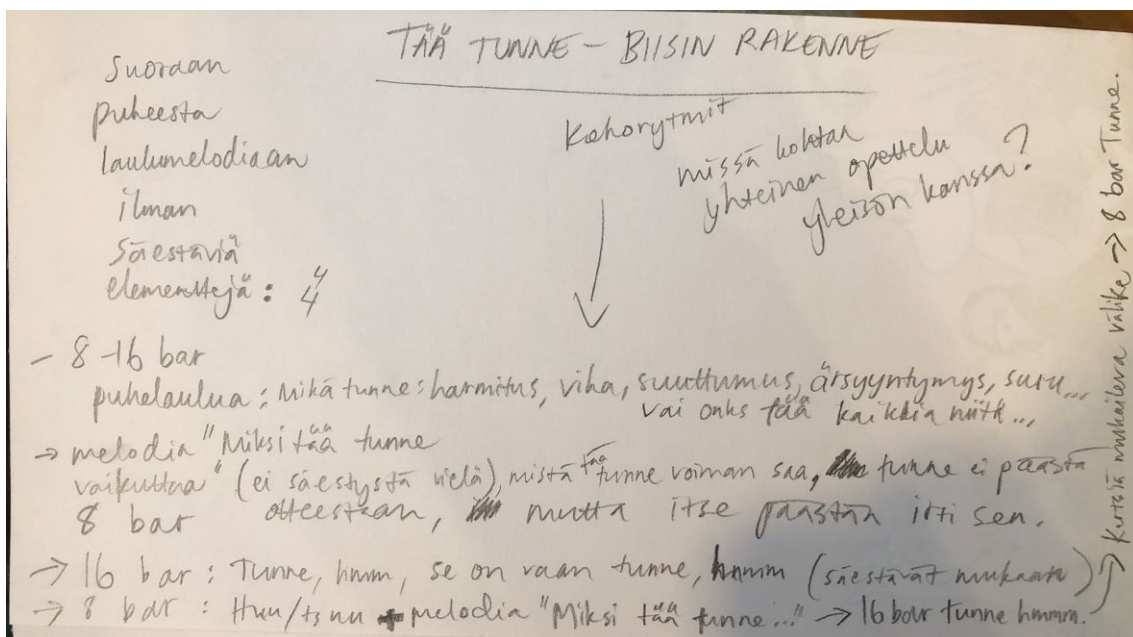 TÄÄ TUNNE - BIISIN RAKENNE
Suoraan
puheesta
laulumelodiaan
ilman
säestäviä
elementtejä: 4/4
Kehorytmit
missä kohtaa
yhteinen opettelu
yleisön kanssa?
- 8-16 bar
puhelaulua: Mikä tunne: harmitus, viha, suuttumus, ärsyyntymys, suru...
vai onks tää kaikkia niitä...
→ melodia "Miksi tää tunne
vaikuttaa" (ei säestystä vielä), mistä tää tunne voiman saa, tunne ei päästä
8 bar otteestaan, mutta itse päästän irti sen.
→ 16 bar: Tunne, hmm, se on vaan tunne, hmmm (säestävät mukaan)
→ 8 bar: Huu/ts nu + melodia "Miksi tää tunne..." → 16 bar tunne hmmm.
→ mukaileva välike → 8 bar Tunne.